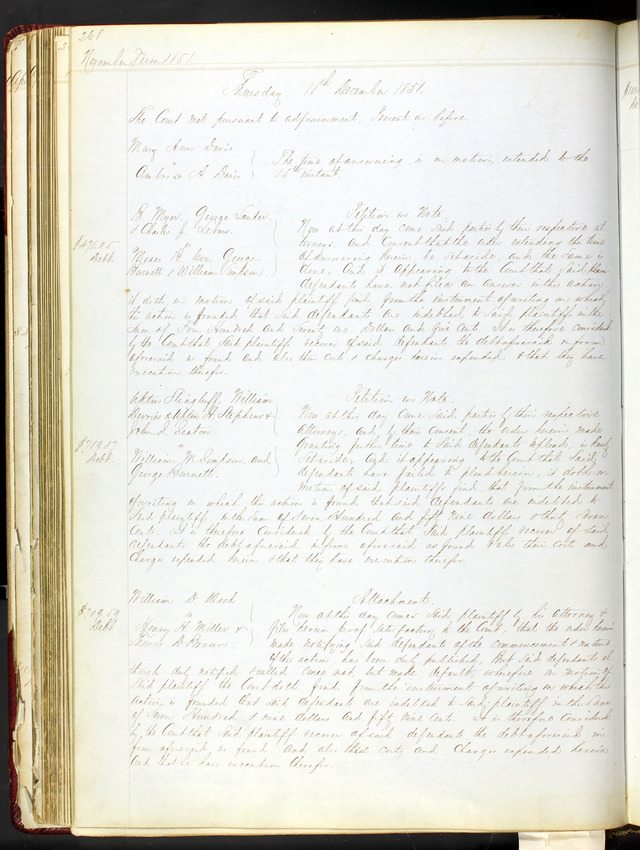 268
November Term 1851
Thursday 11th December 1851.
The Court met pursuant to adjournment. Present as before.
Mary Ann Davis
vs
Ambrose A Davis
The time of answering is on motion, extended to the
15th instant.
$421.05
Debt.
Myer, George
& Charles J.
vs
George
Burnett & William
Petition on Note.
Now at this day come said parties by their respective at-
torneys. And consent that the order extending the time
of answering herein be set aside, and the same is
done, And it appearing to the Court that said
defendants have not filed an answer in this action,
it doth on motion of said plaintiffs find from the instrument of writing on which
this action is founded that said defendants are indebted to said plaintiffs in the
sum of Four Hundred and Twenty one Dollars and five cents. It is therefore considered
by the Court that said plaintiffs recover of said defendants the debt aforesaid in form
aforesaid so found and also their costs & charges herein expended & that they have
execution therefor.
$759.37
Debt.
William
& H Stephens &
John S. Seaton
vs
William W. and
George Burnett.
Petition on Note.
Now at this day come said parties by their respective
attorneys, and by their consent, the order herein made
granting further time to said defendants to plead, is hereby
set aside. And it appearing to the Court that said
defendants have failed to plead herein, it doth on
motion of said plaintiffs find that from the instrument
of writing on which this action is found, that said defendants are indebted to
said plaintiffs in the sum of Seven Hundred and fifty Nine dollars & thirty Seven
Cents. It is therefore Considered by the Court that said plaintiffs recover of said
defendants the debt aforesaid in form aforesaid so found & also their costs and
Charges expended herein & that they have execution therefor.
$709.59
Debt
William D. Wood
vs
Henry H Miller &
D. Brown.
Attachment.
Now at this day comes said plaintiff by his attorney &
files herein proof satisfactory to the Court, that the order herein
made notifying said defendants of the commencement & nature
of this action has been duly published, But said defendants al-
though duly notified & called come not, but make default, wherefore on motion of
said plaintiff the Court doth find from the instrument of writing on which this
action is founded that said defendants are indebted to said plaintiff in the sum
of Seven Hundred & nine dollars and fifty Nine cents. It is therefore Considered
by the Court that said plaintiff recover of said defendants the debt aforesaid in
form aforesaid, so found and also his costs and Charges expended herein
and that he have execution therefor.